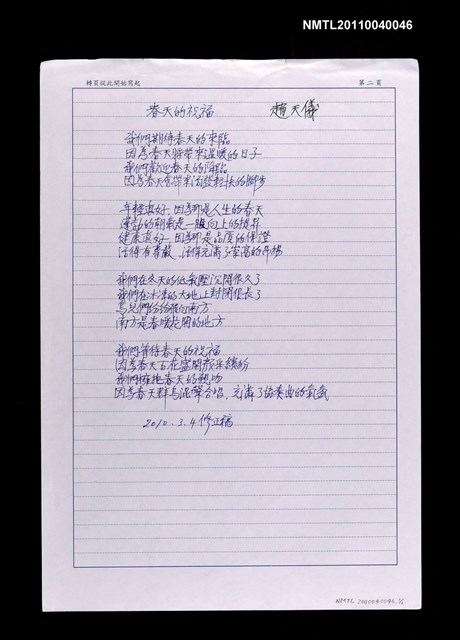 NMTL20110040046
轉頁從此開始寫起
第二頁
春天的祝福
趙天儀
我們期待春天的來臨
因為春天將帶來溫暖的日子
我們歡迎春天的降臨
因為春天會帶來活潑輕快的腳步
年輕真好,因為那是人生的春天
運動的朝氣是一股向上的提昇
健康真好,因為那是品質的保證
活得有尊嚴,活得充滿了崇高的昂揚
我們在冬天的低氣壓沉悶很久了
我們在冰凍的大地上封閉很長了
鳥兒們紛紛飛向南方
南方是春暖花開的地方
我們等待春天的祝福
因為春天百花盛開散采繽紛
我們擁抱春天的
因為春天群鳥混聲合唱,充滿了協奏曲的氣氛
2010.3.4修正稿
NMTL 20110040046